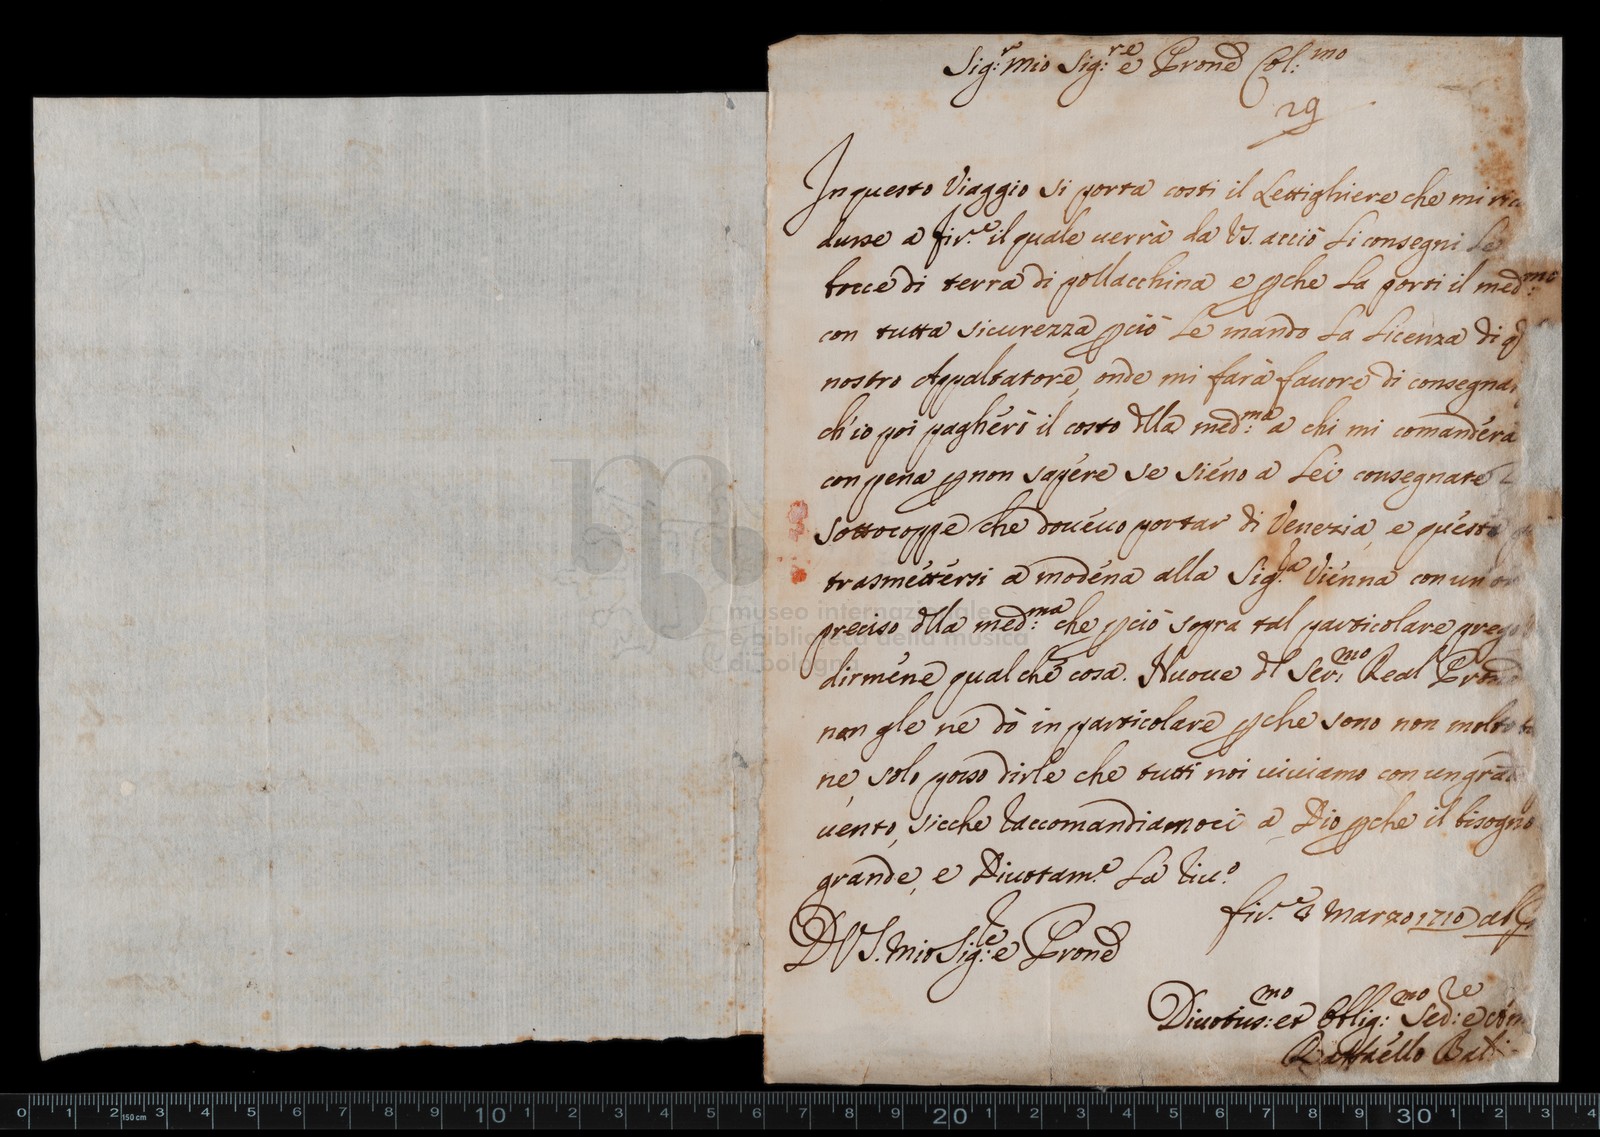 Sig:r mio Sig:re e Prone Col:mo
29
In questo Viaggio si porta costì il Lettighiere che mi
dusse a fir.e il quale verrà da VS. acciò li consegni le
bocce di terra di pollacchina e pche la porti il med:mo
con tutta sicurezza pciò le mando la licenza di
nostro Appaltatore, onde mi farà favore di consegnar
ch'io poi pagherò il costo dlla med:ma a chi mi comanderà
con pena p non sapere se sieno a Lei consegnate
sottocoppe che dovevo portar di Venezia, e queste
trasmettersi a modena alla Sig:ra Vienna con un
preciso dlla med:ma che pciò sopra tal particolare prego
dirmene qualche cosa. Nuove dl Ser:mo Real
non gle ne dò in particolare pche sono non molto
ne, solo posso dirle che tutti noi viviamo con un gran
vento, sicche raccomandiamoci a Dio pche il bisogno
grande, e Divotam.e la riv.o
fir.e 8 Marzo 1710
D VS. mio Sig:re e Prone
Divotiss:mo et Obblig:mo Sed:re e
Raffaello
museo internazionale
e biblioteca della musica
di bologna
0 1 2 150 cm 3 4 5 6 7 8 9 10 1 2 3 4 5 6 7 8 9 20 1 2 3 4 5 6 7 8 9 30 1 2 3 4